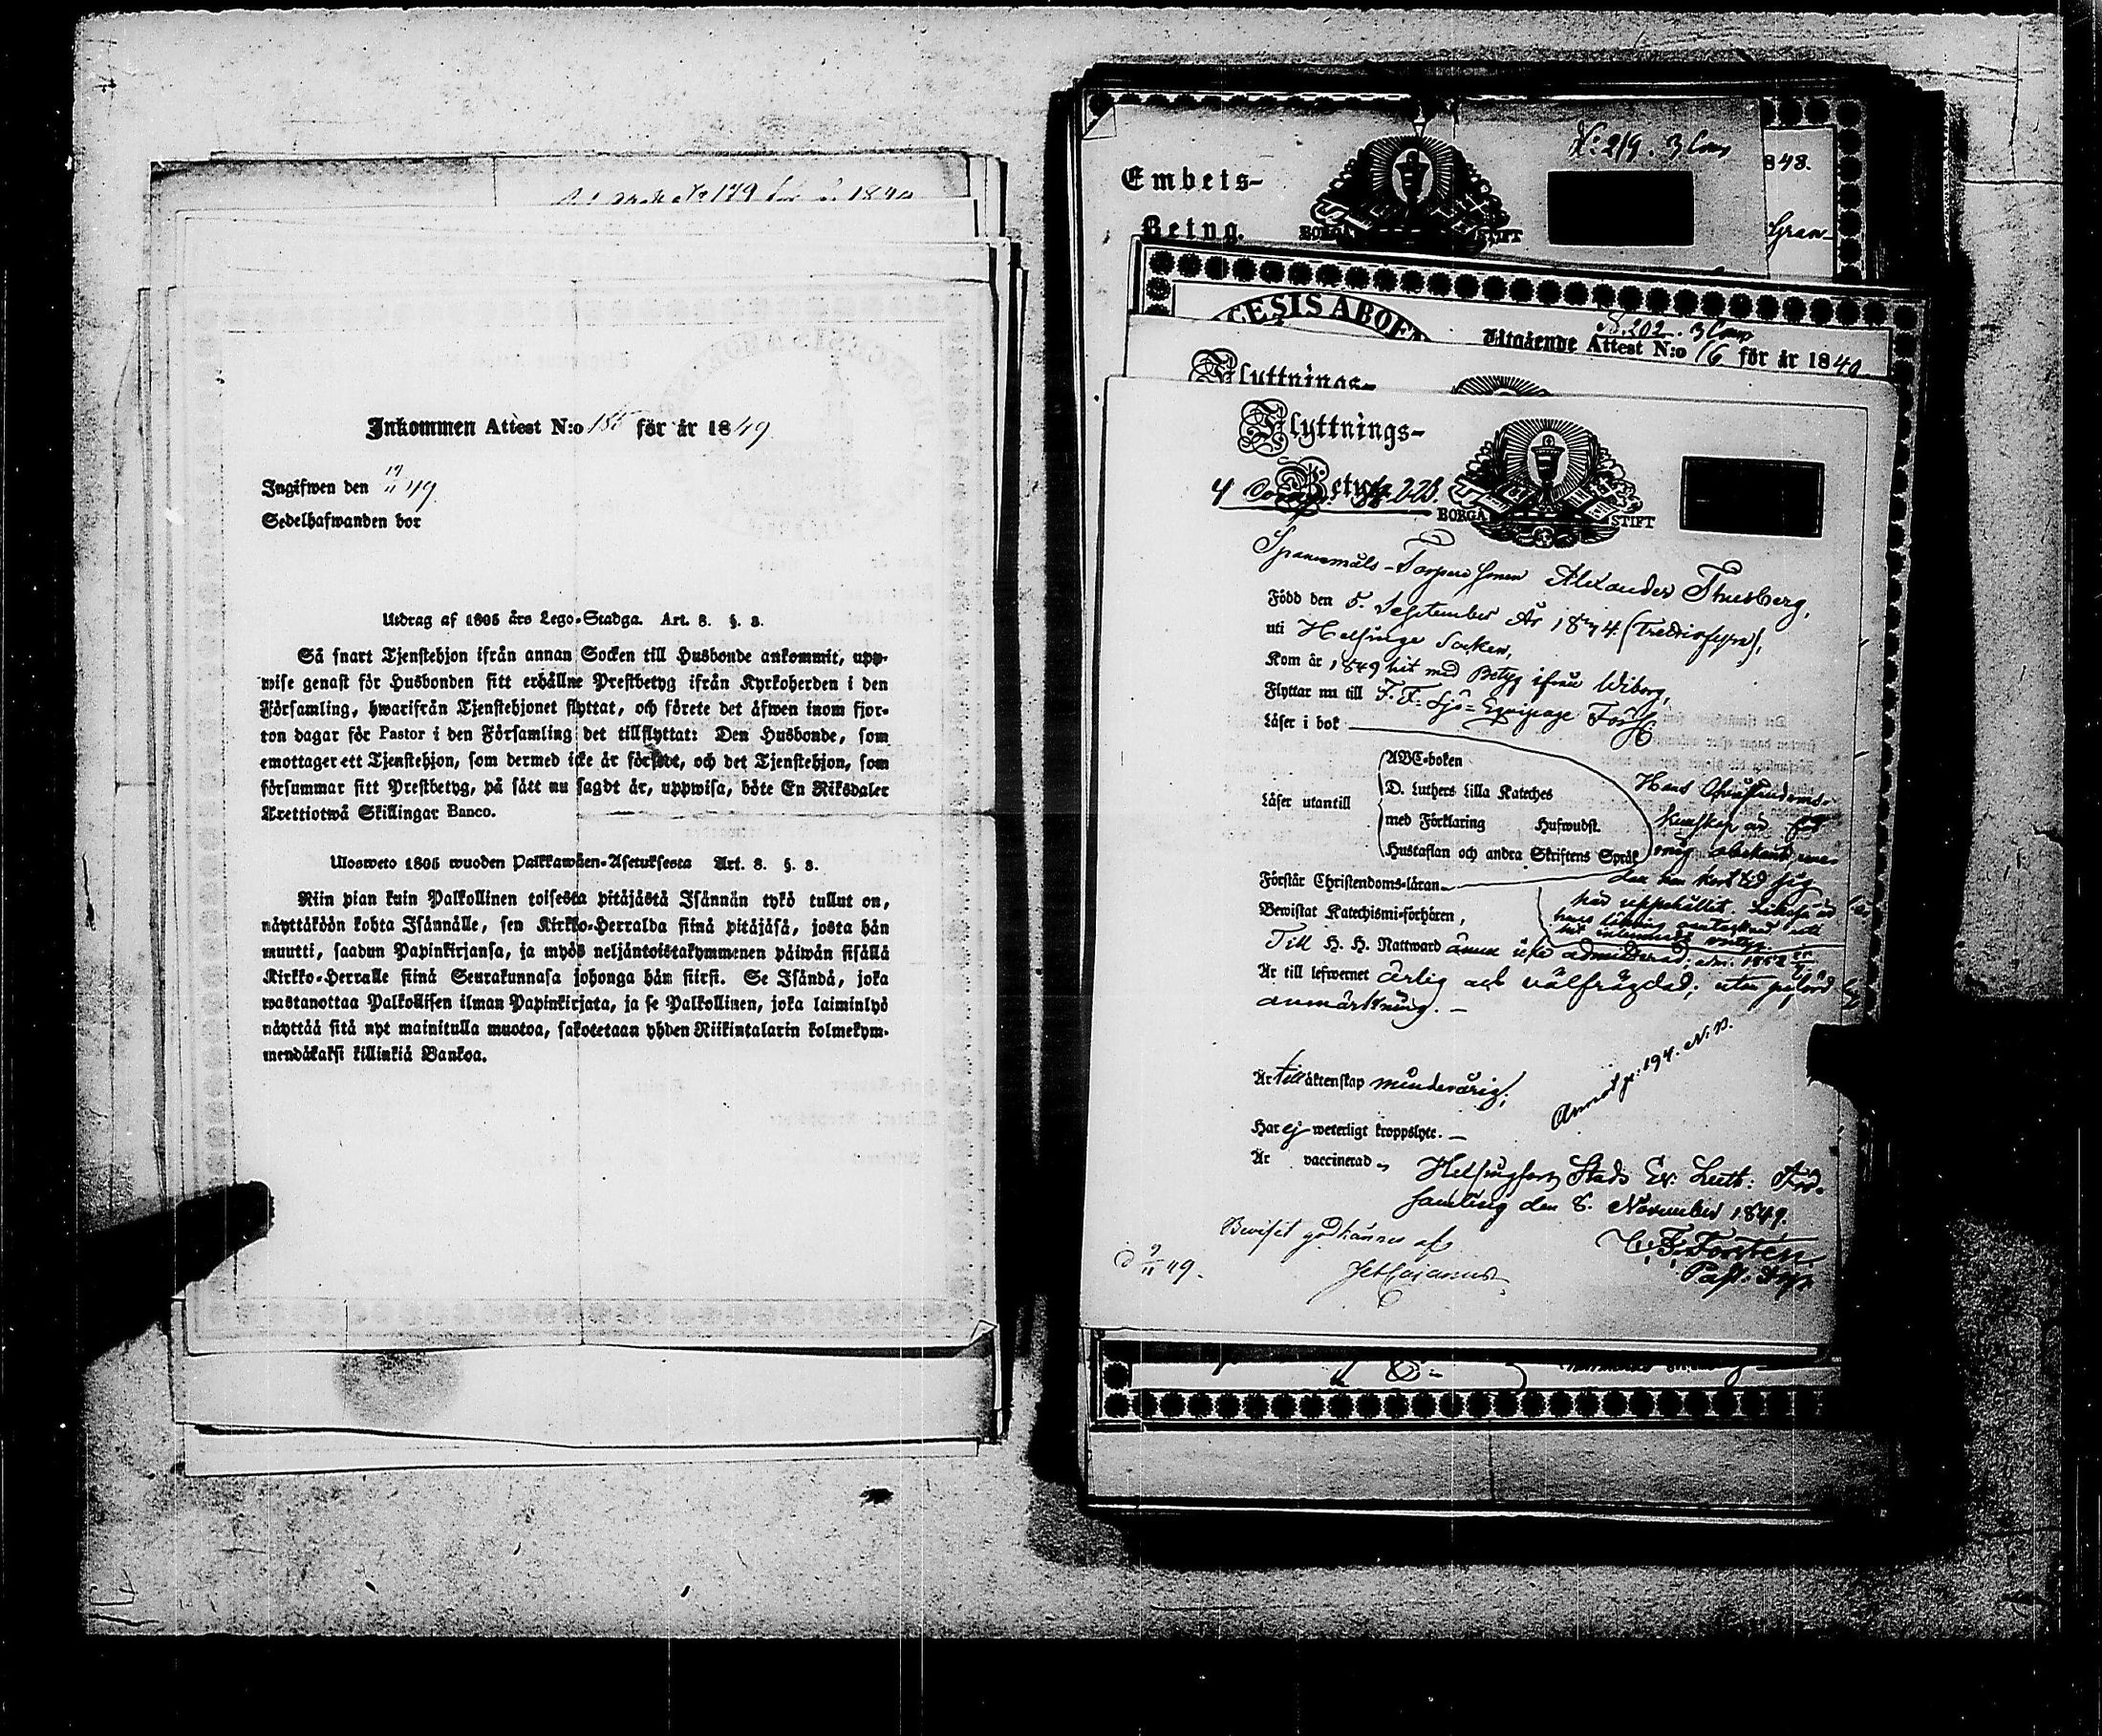 Inkommen Attest N:o för år 1849
Ingifwen den 19/11 49.
Sedelhafwanden bor
Utdrag af 1805 års Lego-Stadga. Art. 8. §. 3.
Så snart Tjenstehjon ifrån annan Socken till Husbonde ankommit, upp-
wise genast för Husbonden sitt erhållne Prestbetyg ifrån Kyrkoherden i den
Församling, hwarifrån Tjenstehjonet flyttat, och förete det äfwen inom fjor-
ton dagar för Pastor i den Församling det tillflyttat: Den Husbonde, som
emottager ett Tjenstehjon, som dermed icke är försedt, och det Tjenstehjon, som
försummar sitt Prestbetyg, på sätt nu sagdt är, uppwisa, böte En Riksdaler
Trettiotwå Skillingar Banco.
Ulosweto 1805 wuoden Palkkawäen-Asetuksesta Art. 8. §. 3.
Niin pian kuin Palkollinen toisesta pitäjästä Isännän tykö tullut on,
näyttäköön kohta Isännälle, sen Kirkko-Herralda siinä pitäjäsä, josta hän
muutti, saadun Papinkirjansa, ja myös neljäntoistakymmenen päiwän sisällä
Kirkko-Herralle siinä Seurakunnasa johonga hän siirsi. Se Isändä, joka
wastanottaa Palkollisen ilman Papinkirjata, ja se Palkollinen, joka laiminlyö
näyttää sitä nyt mainitulla muotoa, sakotetaan yhden Riikintalarin kolmekym-
mendäkaksi killinkiä Bankoa.
N: 219. 3 Comp
Embets-
Betyg.
BORGÅ STIFT
848.
Gran-
CESIS ABOE
N. 202. 3 Comp
Utgående Attest N:o 16 för år 1849
Flyttnings-
Flyttnings-
Betyg
4 Comp. No 228.
BORGÅ STIFT
Spanmåls-Torpare sonen Alexander Thusberg,
Född den 5. September År 1834 (Trettiofyra),
uti Helsinge Socken,
Kom år 1849 hit med Betyg ifrån Wiborg,
Flyttar nu till F. F. Sjö-Equipage Förs
Läser i bok
Läser utantill
ABC-boken
D. Luthers Lilla Kateches
med Förklaring Hufwudst.
Hustaflan och andra Skriftens Språk
Hans Christendoms-
kunskap är för
mig obekant eme-
dan han kort tid sig
här uppehållit.
Förstår Christendoms-läran
Bewistat Katechismi-förhören,
Till H. H. Nattward ännu icke admitterad. adm. 1852
Är till lefwernet ärlig och välfrägdad; utan påförd
anmärkning. —
Är till äktenskap minderårig;
Annot. p: 194. N. B.
Har ej weterligt kroppslyte. —
Är vaccinerad.
Helsingfors Stads Ev. Luth: För-
samling den 8. November 1849.
C. F. Forstén
Past:
Beviset godkännes af
d 9/11 49.
Cajanus